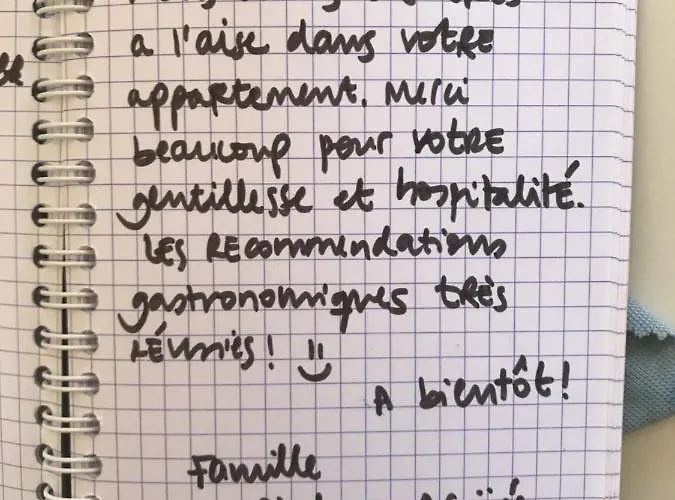 a l'aise dans votRE
appartement. Merci
beaucoup pour votRE
gentillesse et hospitalité.
LES REcommendations
gastronomiques tRÈs
RÉUNIES! :)
A bientôt!
Famille